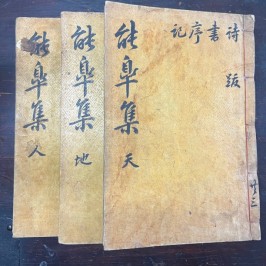 詩書序記
跋
共三
能皐集 天
能皐集 地
能皐集 人